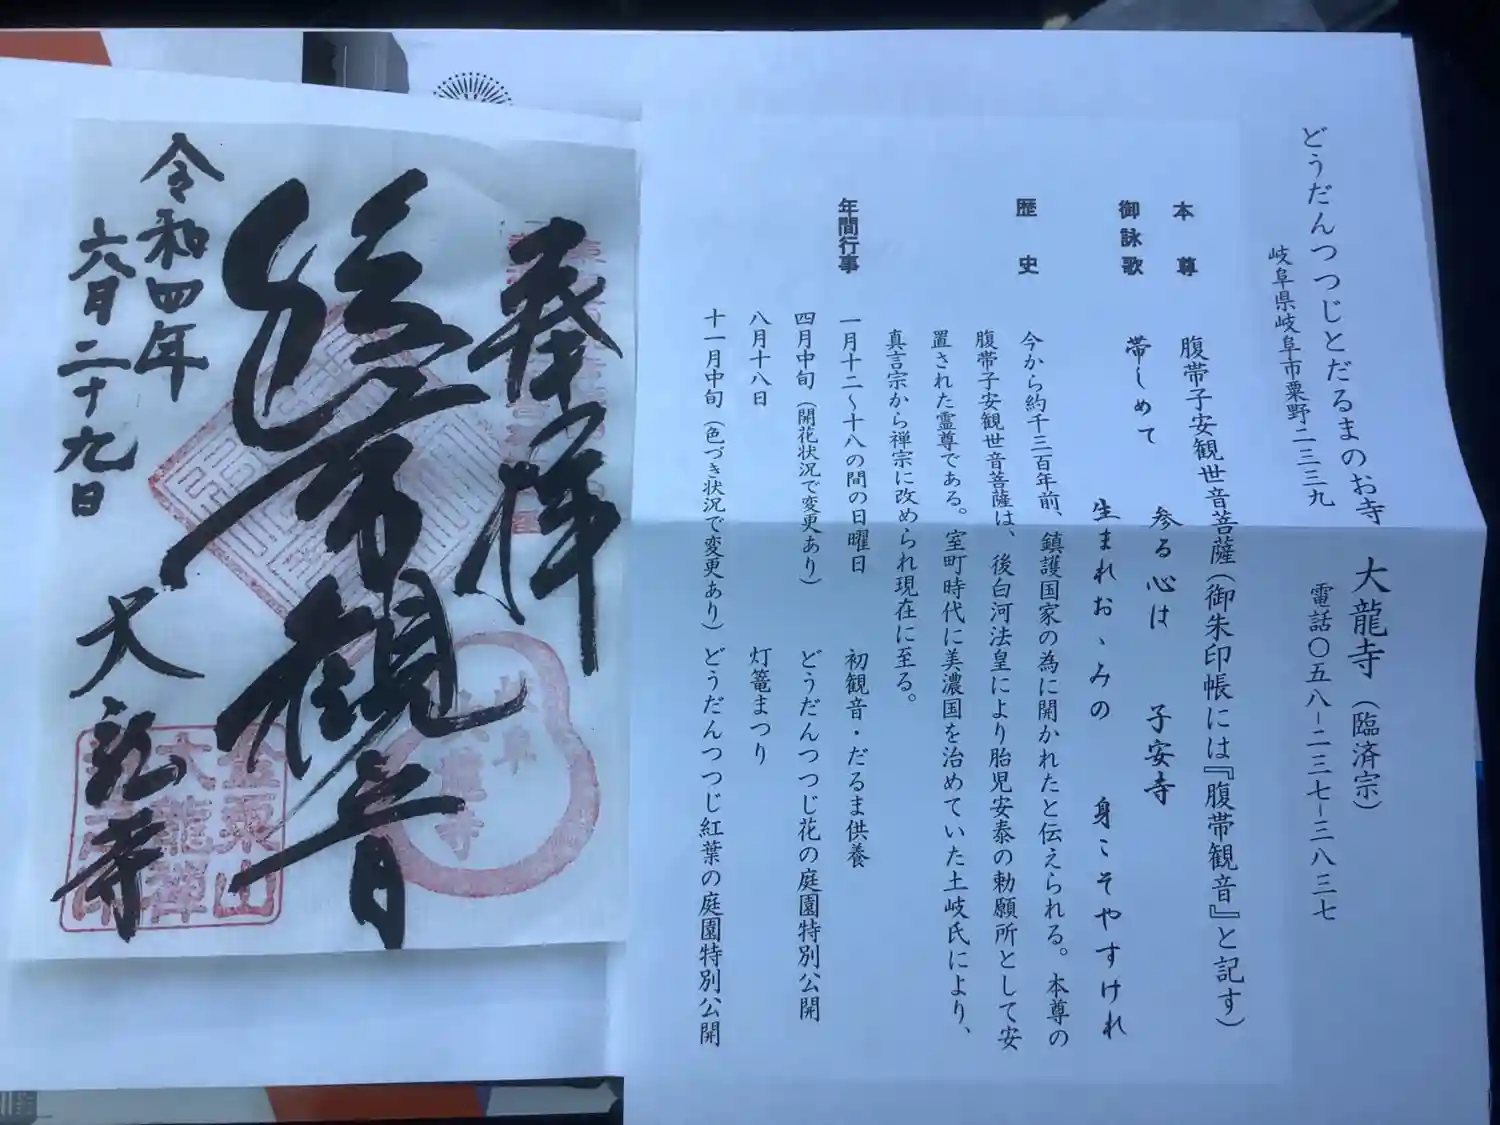 どうだんつつじとだるまのお寺 大龍寺（臨済宗）
岐阜県岐阜市粟野二三三九 電話〇五八－二三七－三八三七
本尊 腹帯子安観世音菩薩（御朱印帳には『腹帯観音』と記す）
御詠歌 帯しめて 参る心は 子安寺
生まれおゝみの 身こそやすけれ
歴史 今から約千三百年前、鎮護国家の為に開かれたと伝えられる。本尊の
腹帯子安観世音菩薩は、後白河法皇により胎児安泰の勅願所として安
置された霊尊である。室町時代に美濃国を治めていた土岐氏により、
真言宗から禅宗に改められ現在に至る。
年間行事 一月十二～十八の間の日曜日 初観音・だるま供養
四月中旬（開花状況で変更あり） どうだんつつじ花の庭園特別公開
八月十八日 灯篭まつり
十一月中旬（色づき状況で変更あり） どうだんつつじ紅葉の庭園特別公開
奉拝
腹帯観音
令和四年
六月二十九日
大龍寺
金粟山
大龍禅
岐阜
大龍寺